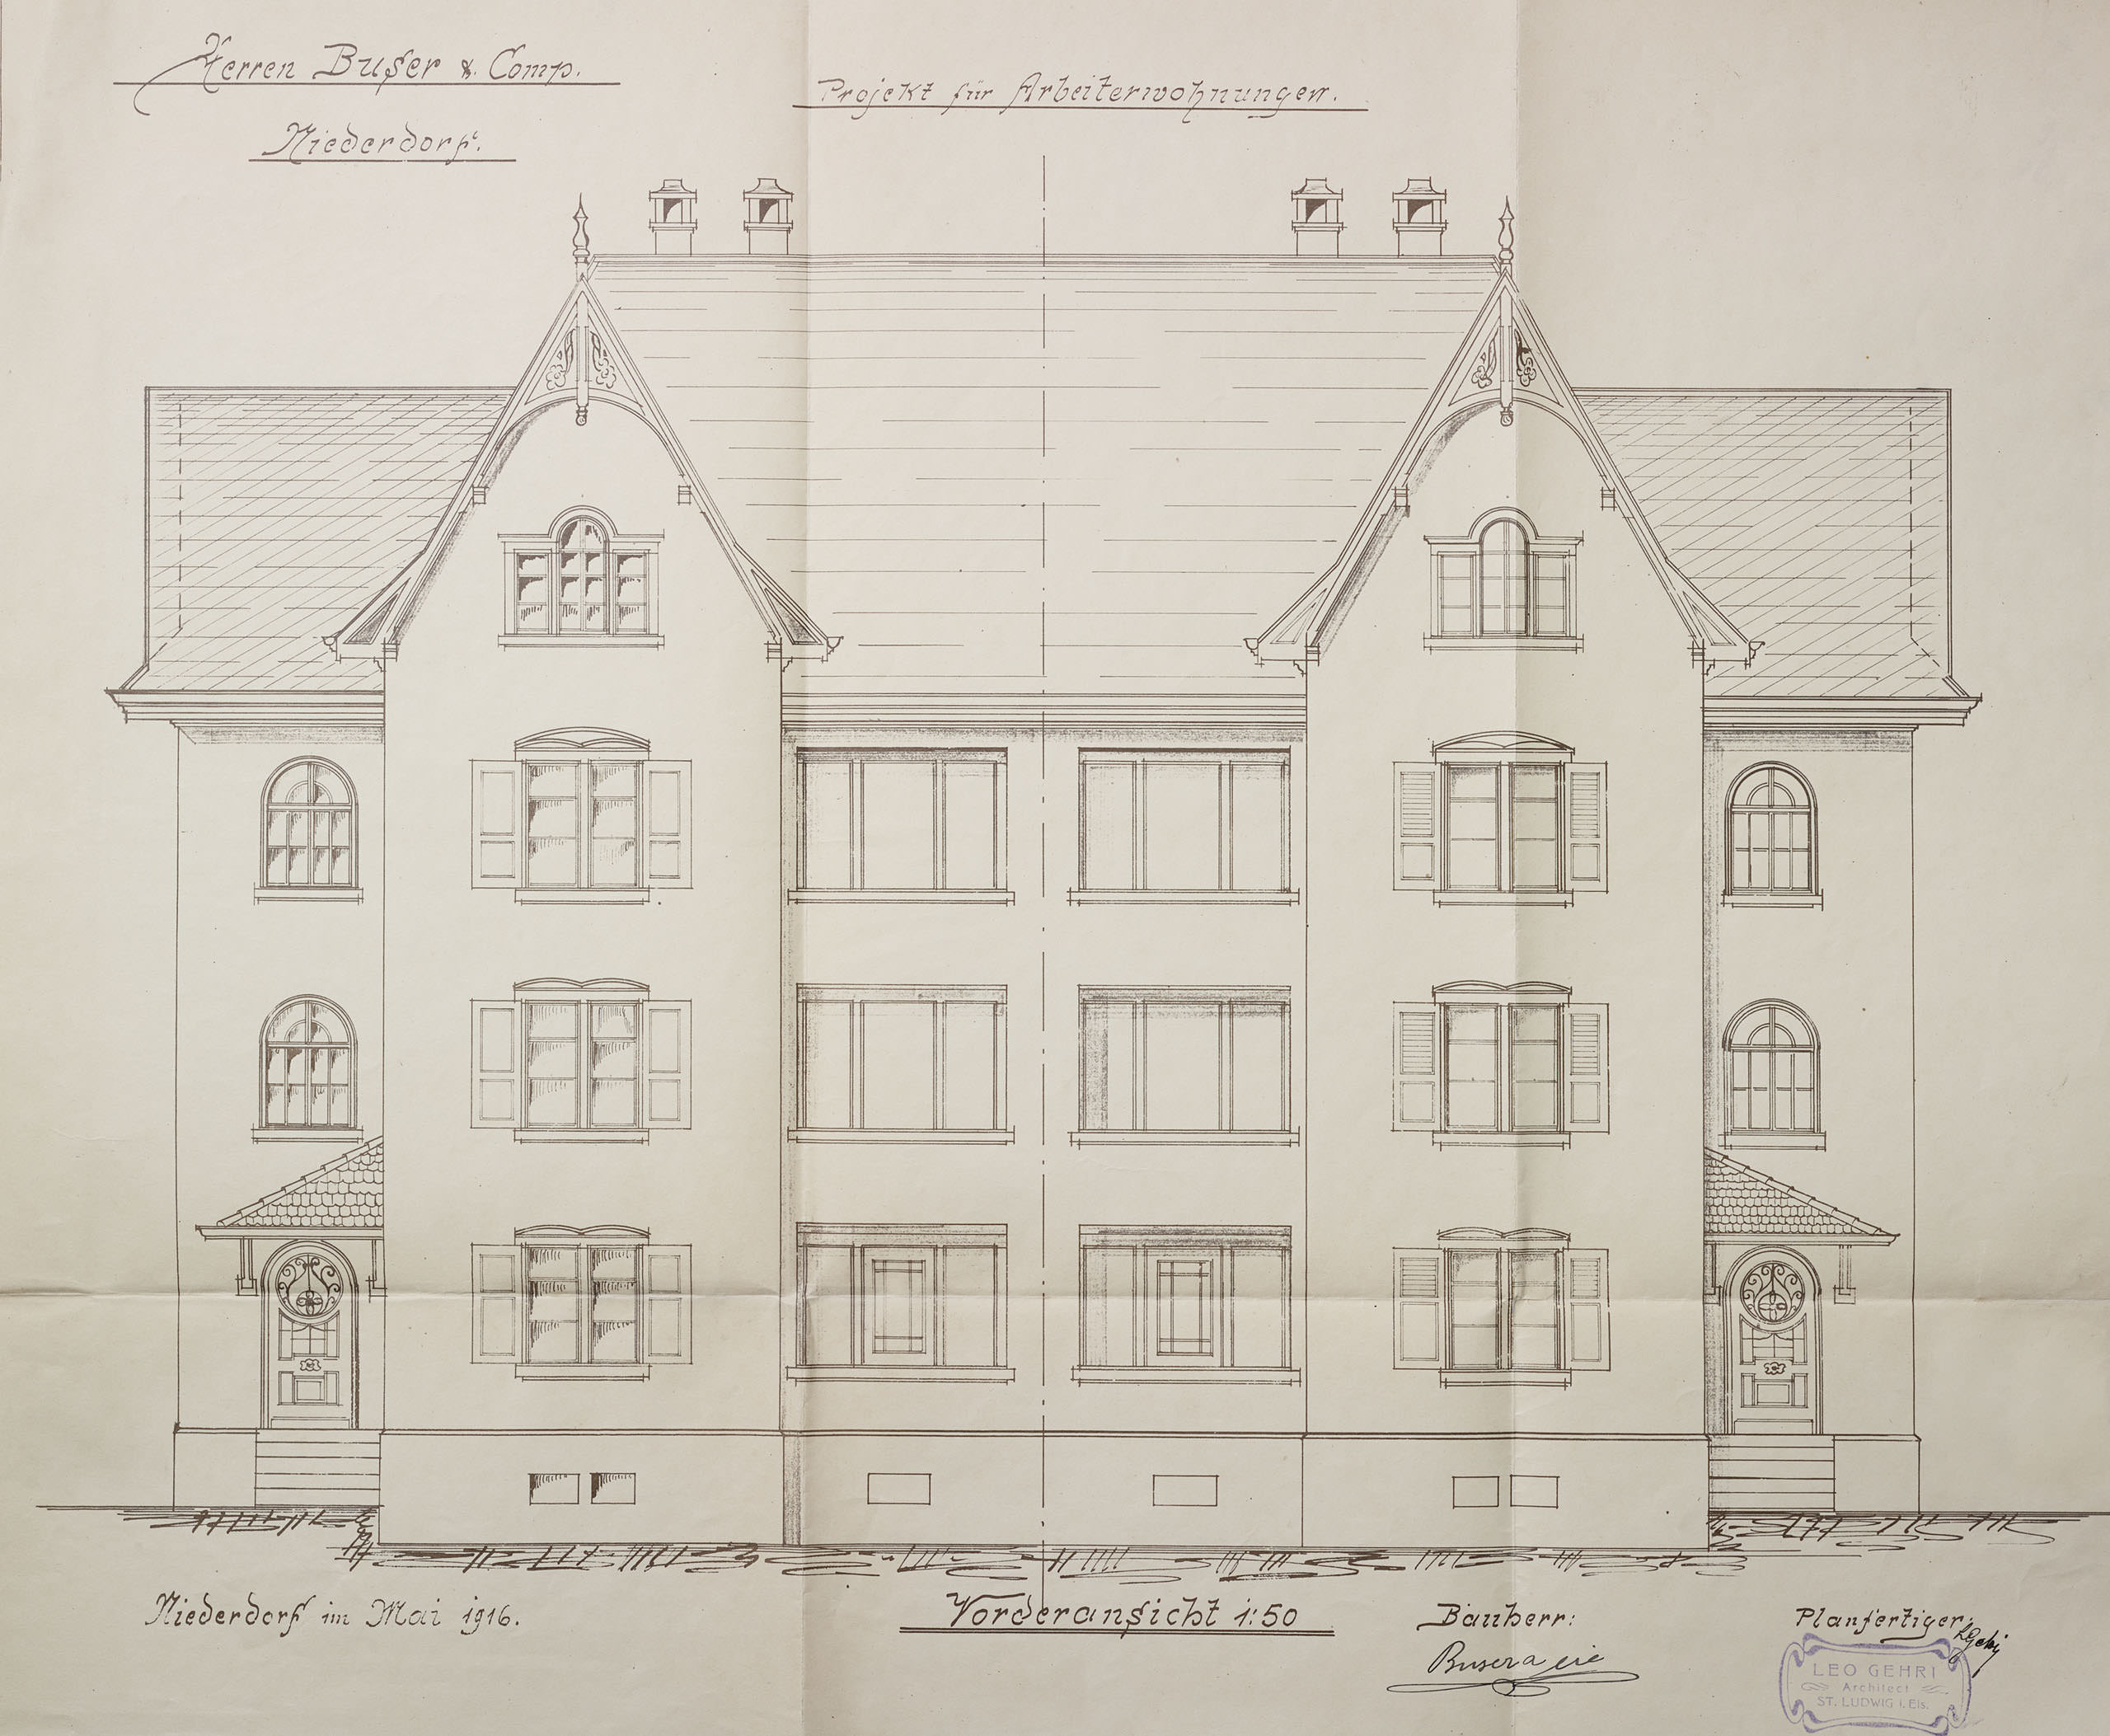 Herren Buser & Comp.
Niederdorf.
Projekt für Arbeiterwohnungen.
Niederdorf im Mai 1916.
Vorderansicht 1:50
Bauherr:
Buser & Cie
Planfertiger:
LGehri
LEO GEHRI
Architect
ST. LUDWIG i. Els.